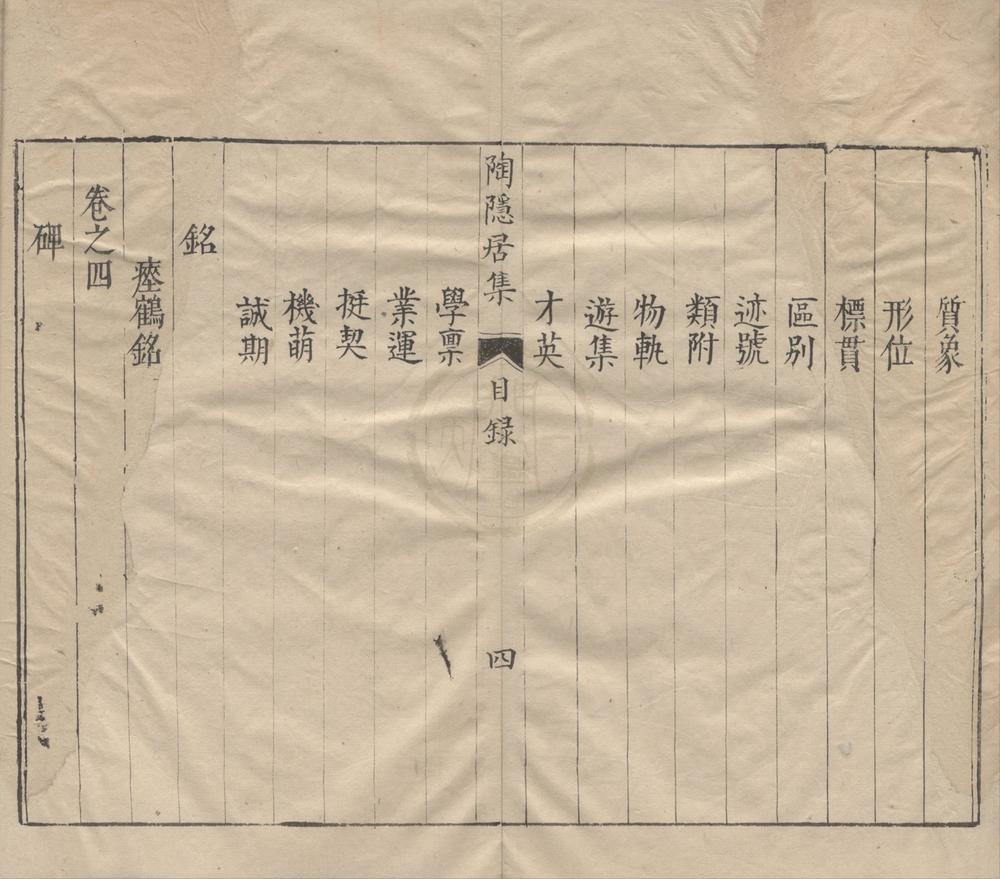 質象
形位
標貫
區别
迹號
類附
物軌
遊集
才英
陶隱居集 目録 四
學禀
業運
挻契
機萌
誠期
銘
瘞鶴銘
卷之四
碑